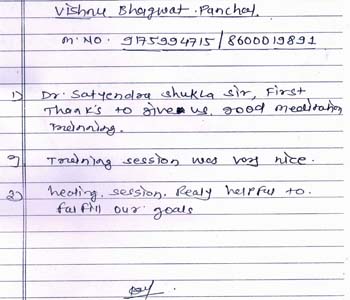 Vishnu Bhagwat. Panchal.
M. No. 9175994715 / 8600019891
1) Dr. Satyendra Shukla Sir, First
Thank's to give us good meditation
Trainning.
2) Training session was very nice.
3) healing session. Realy helpful to.
fulfill our goals